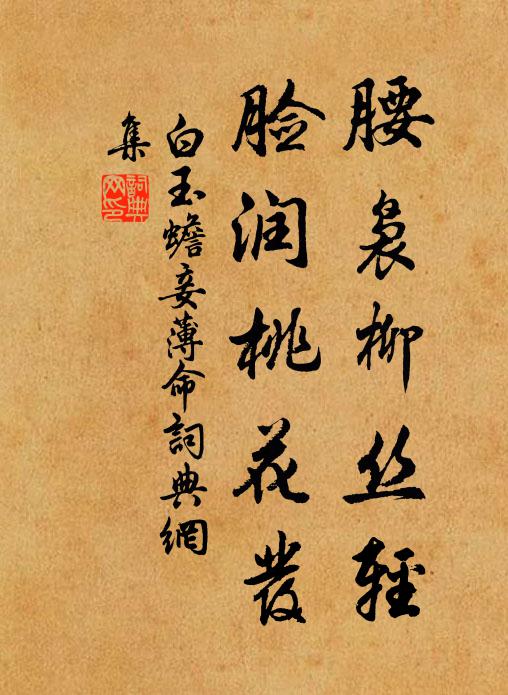 腰袅柳丝輕
脸润桃花發
白玉蟾妾薄命詞典網
集
詞典
网印